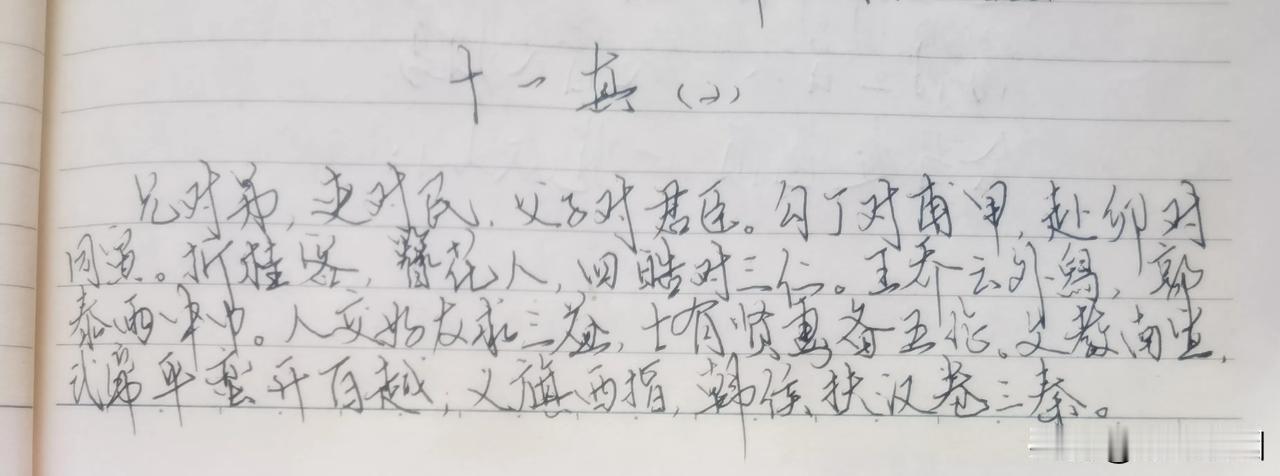 十一真(2)
兄对弟,吏对民,父子对君臣。勾丁对甫甲,赴卯对
同寅。折桂客,簪花人,四皓对三仁。王乔云外舄,郭
泰雨中巾。人交好友求三益,士有贤妻备五伦。文教南宣,
武帝平蛮开百越,义旗西指,韩侯扶汉卷三秦。